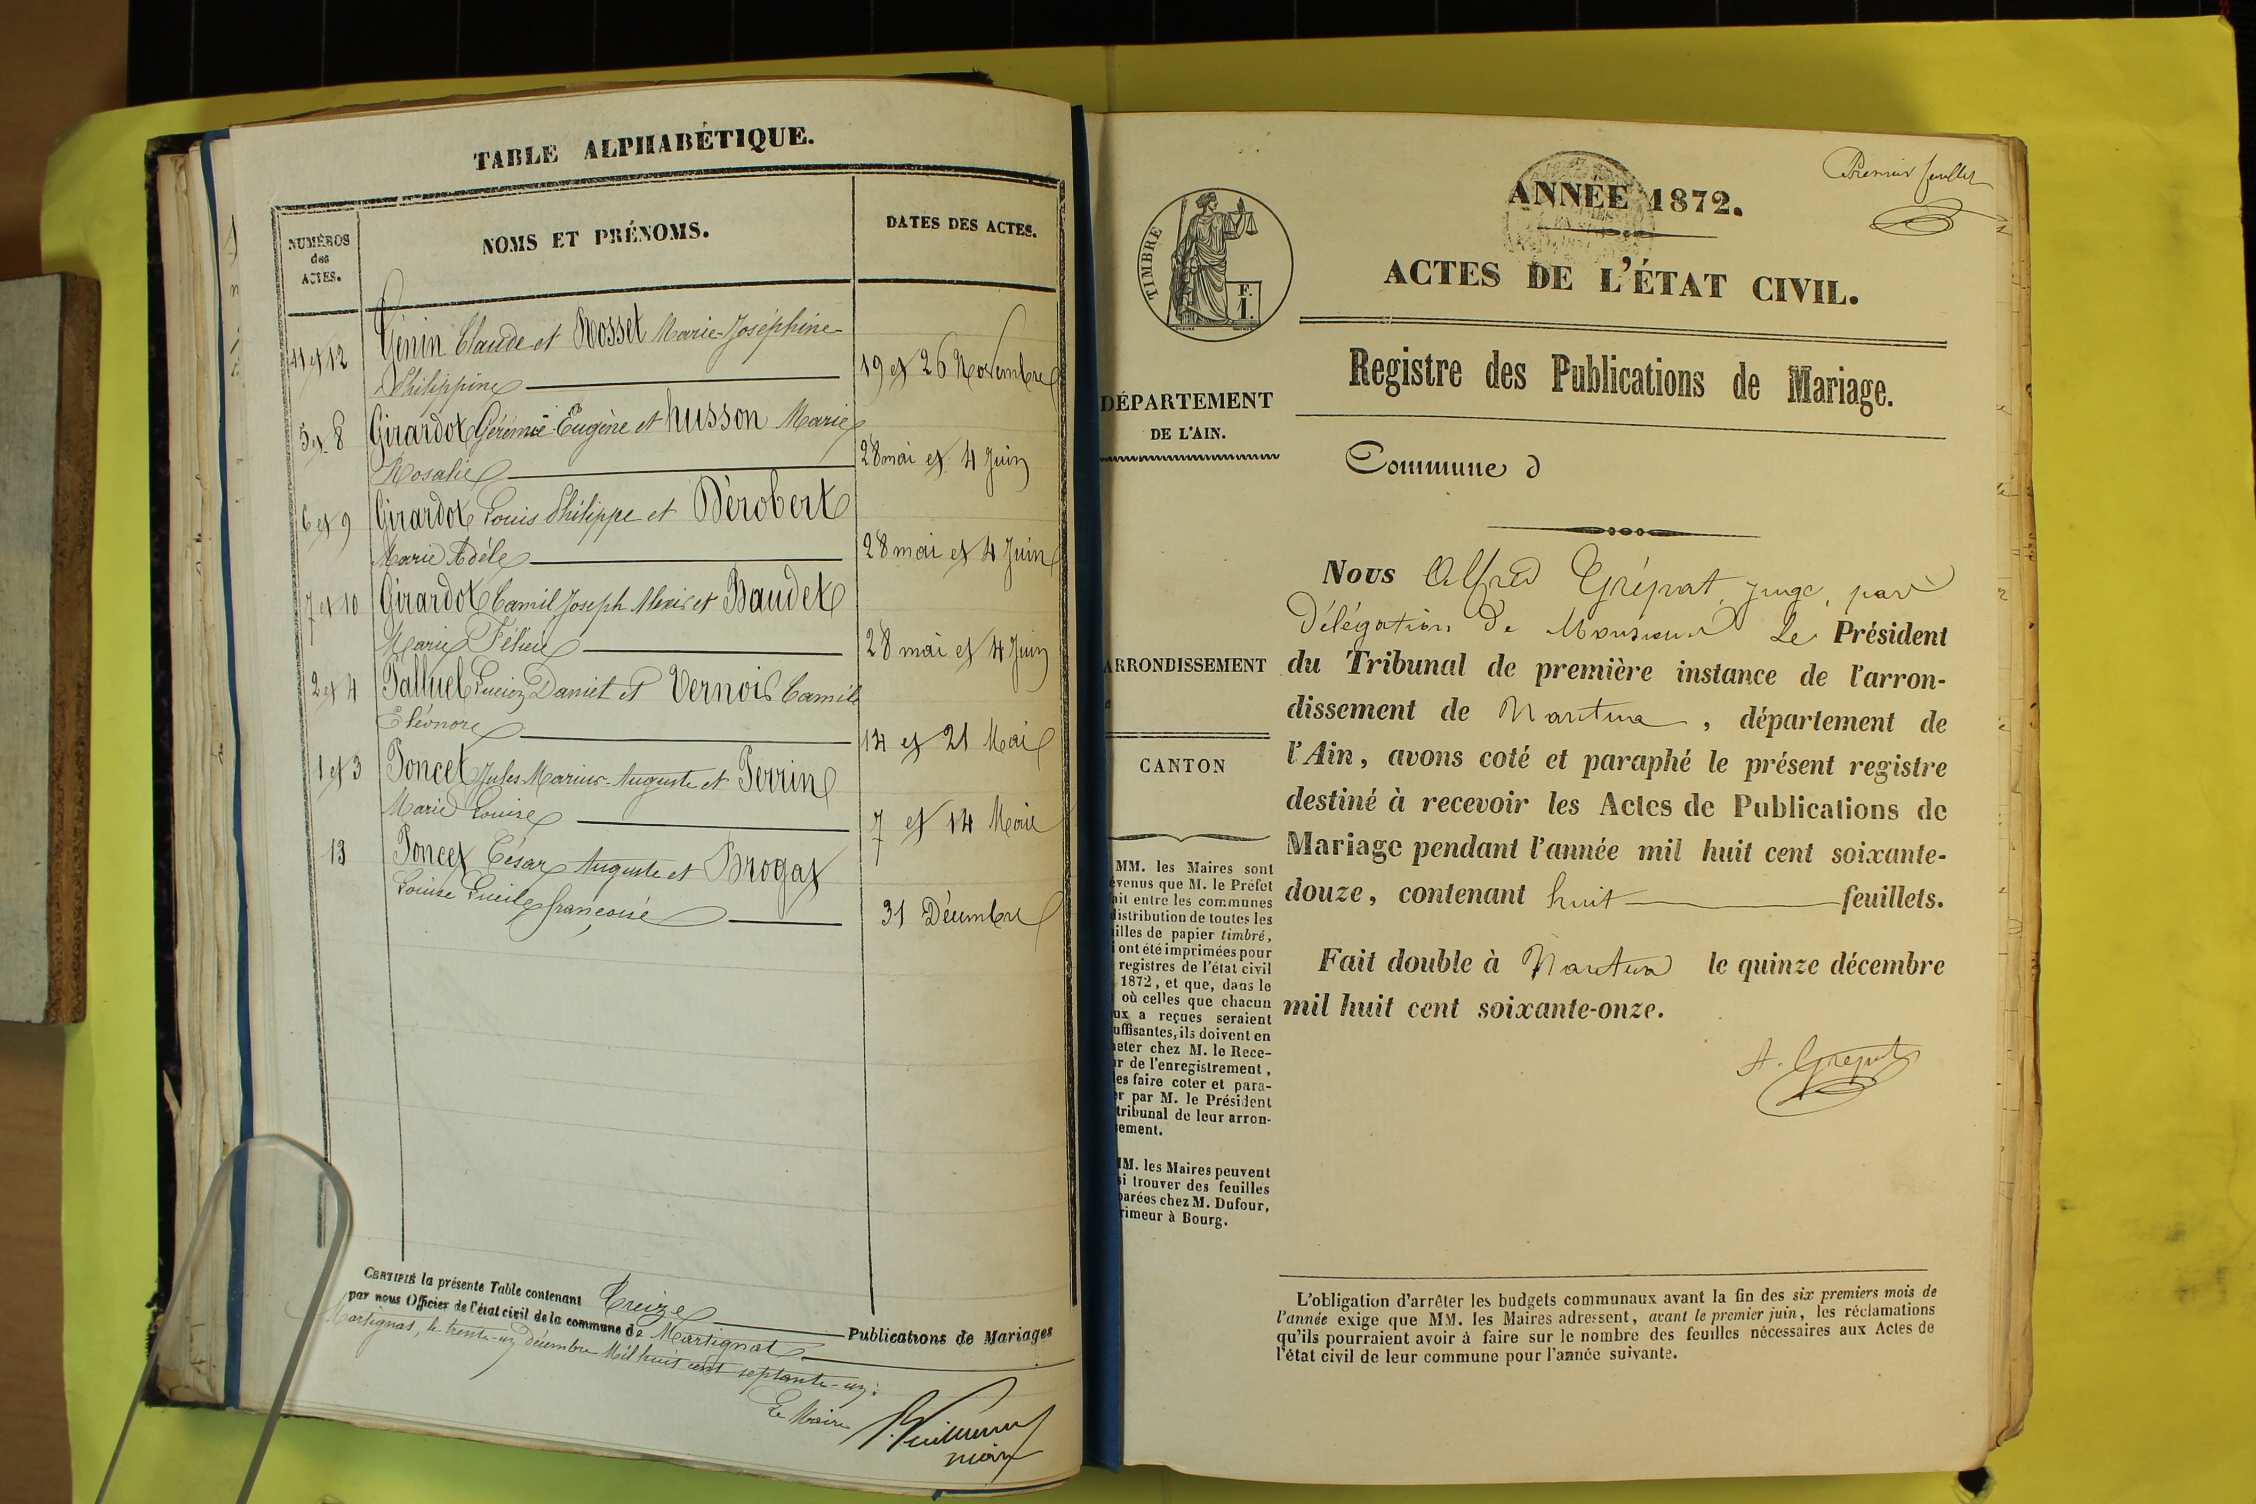 TABLE ALPHABÉTIQUE.
NUMÉROS
des
ACTES.
NOMS ET PRÉNOMS.
DATES DES ACTES.
11 et 12
Génin Claude et Rosset Marie-Joséphine-
Philippine
19 et 26 Novembre
5 et 8
Girardot Gérémie-Eugène et husson Marie
Rosalie
28 mai et 4 Juin
6 et 9
Girardot Louis Philippe et Dérobert
Marie Adéle
28 mai et 4 Juin
7 et 10
Girardot Camil Joseph Alexis et Baudet
Marie
28 mai et 4 Juin
2 et 4
Palluel Daniel et Vernois Camile
Eléonore
14 et 21 Mai
1 et 3
Poncet Jules Marius-Auguste et Perrin
Marie Louise
7 et 14 Mai
13
Poncet César Auguste et Brogat
Louise Lucile françoise
31 Décembre
CERTIFIÉ la présente Table contenant Treize Publications de Mariages
par nous Officier de l'état civil de la commune de Martignat
Martignat, le trente-un décembre Mil huit cent septante-un:
Le Maire
Premier feuillet
ANNÉE 1872.
TIMBRE
F.
1.
ACTES DE L'ÉTAT CIVIL.
Registre des Publications de Mariage.
DÉPARTEMENT
DE L'AIN.
Commune d
Nous Alfred Grépat, juge, par
Délégation de Monsieur Le Président
du Tribunal de première instance de l'arron-
dissement de Nantua, département de
l'Ain, avons coté et paraphé le présent registre
destiné à recevoir les Actes de Publications de
Mariage pendant l'année mil huit cent soixante-
douze, contenant huit feuillets.
Fait double à Nantua le quinze décembre
mil huit cent soixante-onze.
A. Grépat
ARRONDISSEMENT
CANTON
MM. les Maires sont
évenus que M. le Préfet
ait entre les communes
distribution de toutes les
illes de papier timbré,
i ont été imprimées pour
registres de l'état civil
1872, et que, dans le
où celles que chacun
ux a reçues seraient
uffisantes, ils doivent en
heter chez M. le Rece-
r de l'enregistrement,
les faire coter et para-
er par M. le Président
tribunal de leur arron-
ement.
MM. les Maires peuvent
si trouver des feuilles
parées chez M. Dufour,
rimeur à Bourg.
L'obligation d'arrêter les budgets communaux avant la fin des six premiers mois de
l'année exige que MM. les Maires adressent, avant le premier juin, les réclamations
qu'ils pourraient avoir à faire sur le nombre des feuilles nécessaires aux Actes de
l'état civil de leur commune pour l'année suivante.